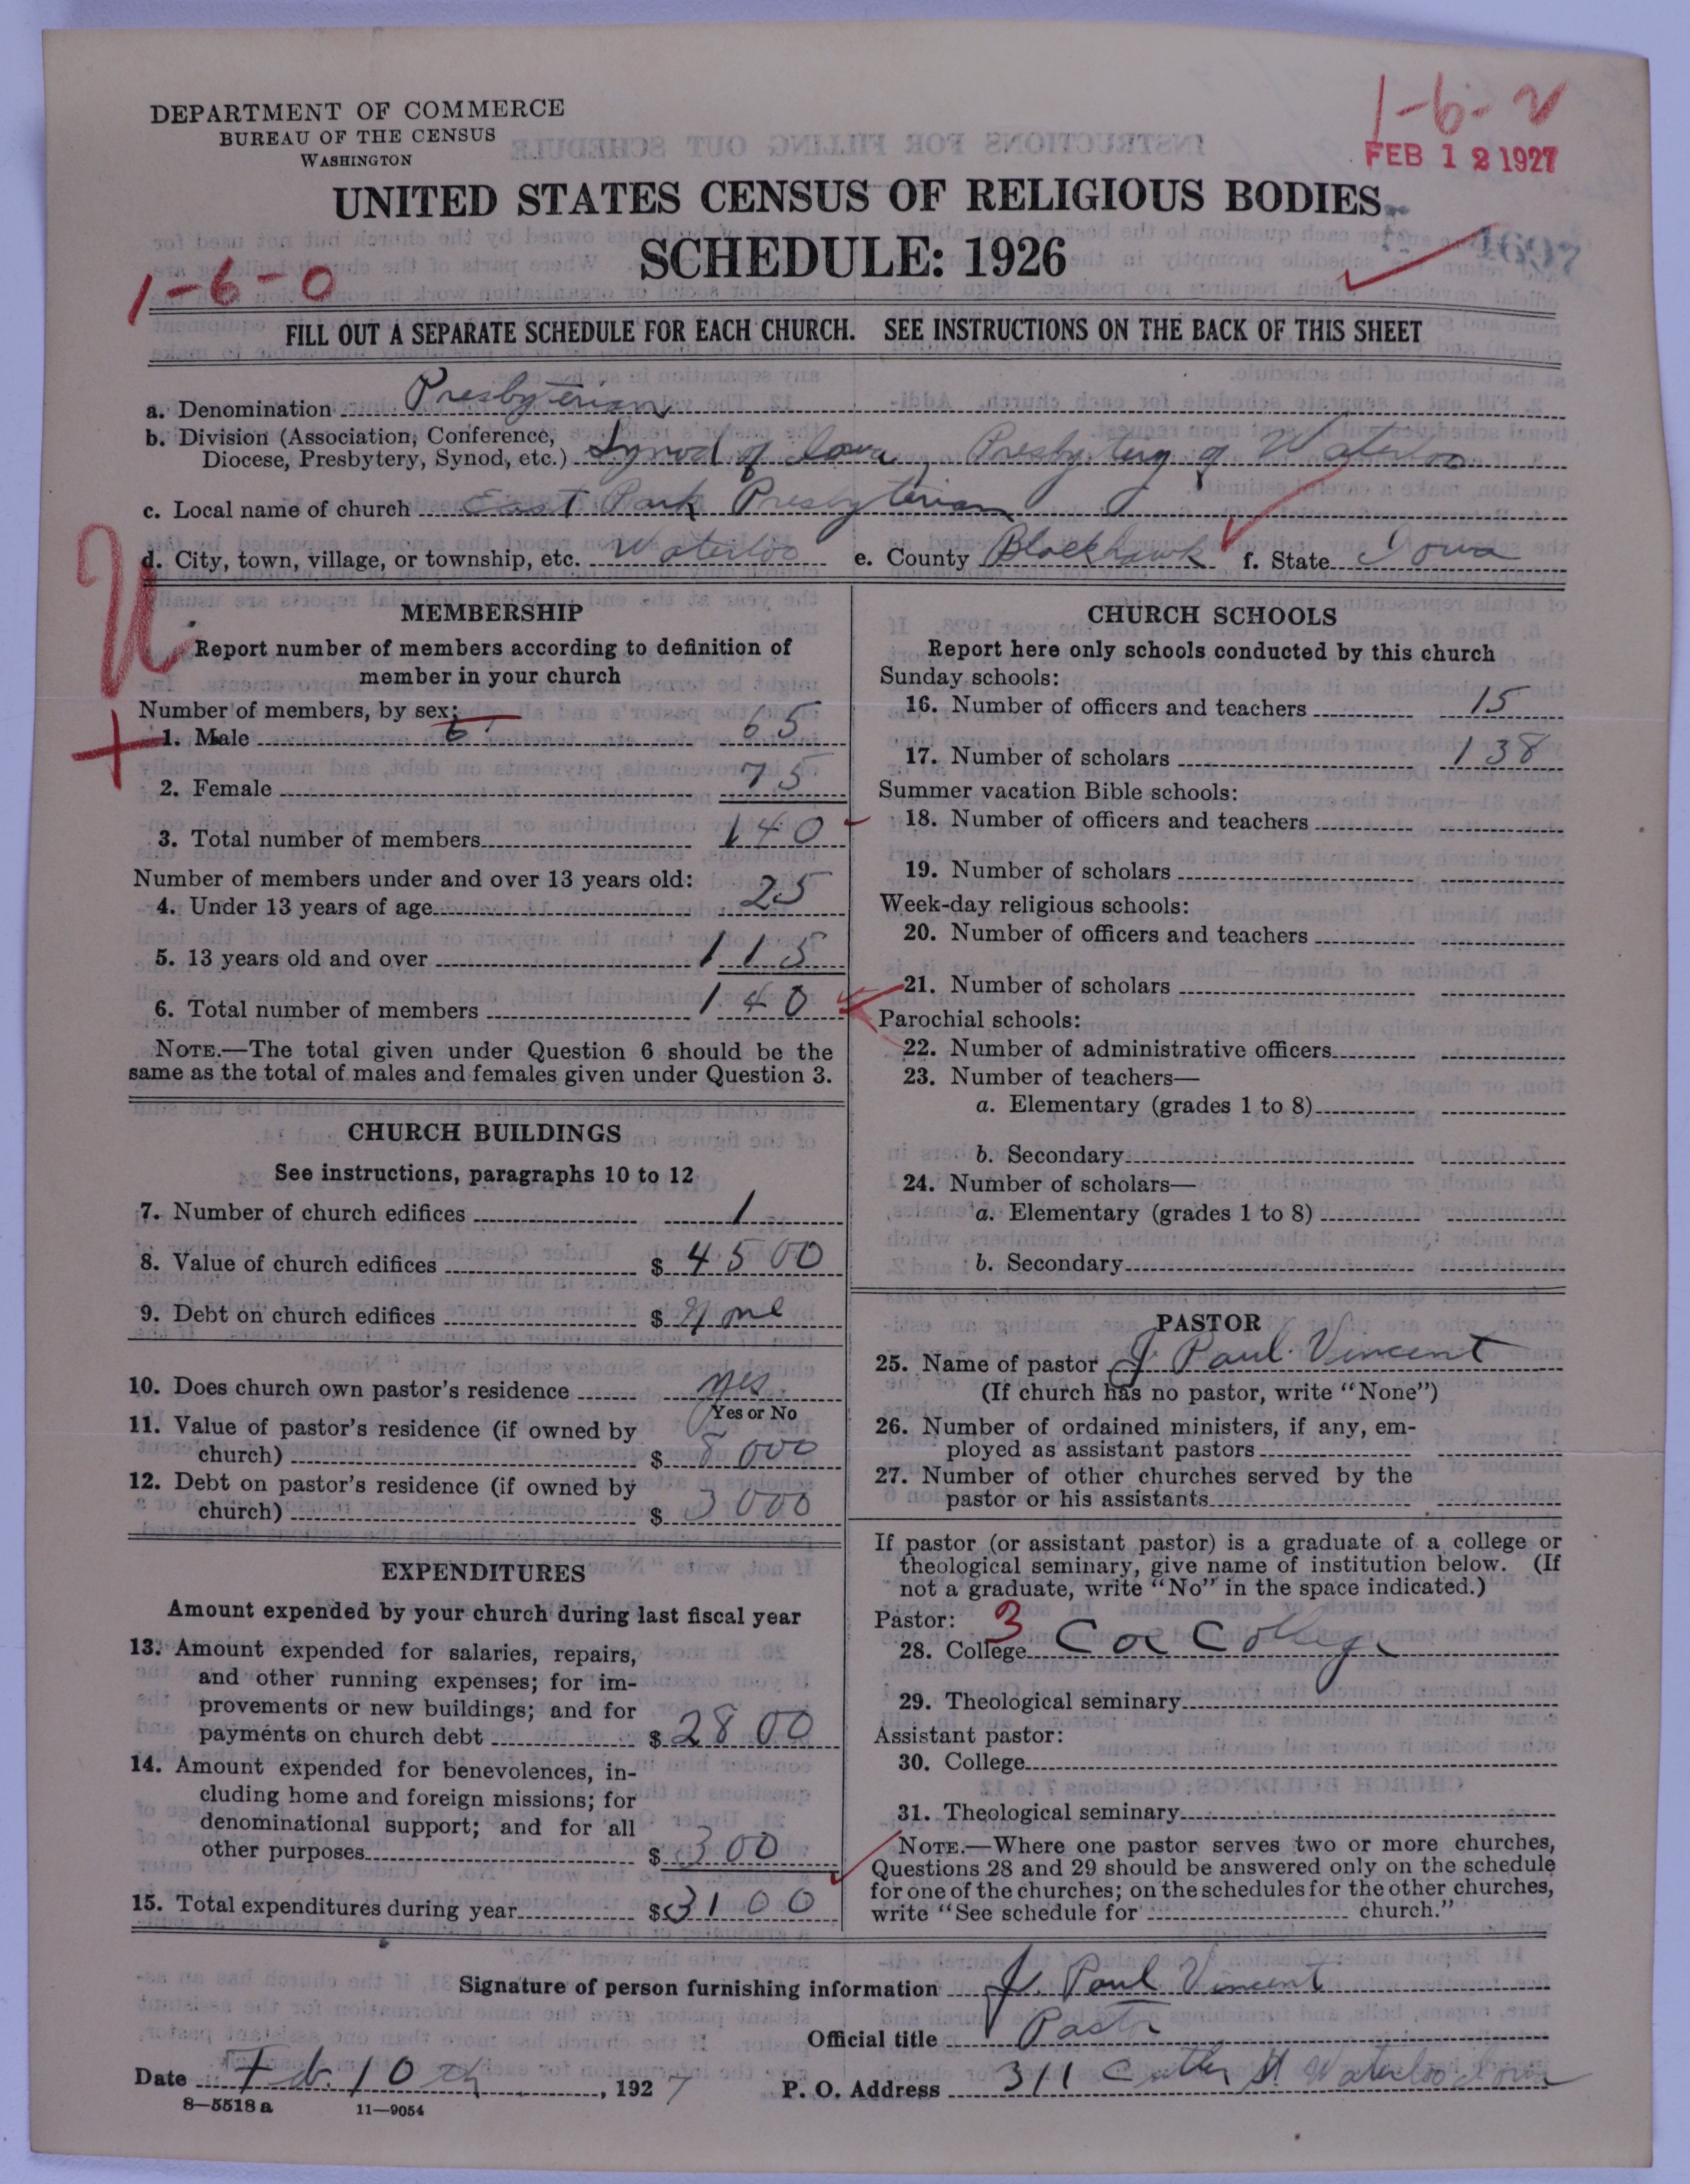 DEPARTMENT OF COMMERCE
BUREAU OF THE CENSUS
WASHINGTON
1-6-2
FEB 12 1927
UNITED STATES CENSUS OF RELIGIOUS BODIES
SCHEDULE: 1926
4697
1-6-0
FILL OUT A SEPARATE SCHEDULE FOR EACH CHURCH. SEE INSTRUCTIONS ON THE BACK OF THIS SHEET
a. Denomination Presbyterian
b. Division (Association, Conference,
Diocese, Presbytery, Synod, etc.) Synod of Iowa, Presbytery of Waterloo
c. Local name of church East Park Presbyterian
d. City, town, village, or township, etc. Waterloo e. County Blackhawk f. State Iowa
MEMBERSHIP
Report number of members according to definition of
member in your church
Number of members, by sex:
1. Male 6 65
2. Female 75
3. Total number of members 140
Number of members under and over 13 years old:
4. Under 13 years of age 25
5. 13 years old and over 115
6. Total number of members 140
NOTE.—The total given under Question 6 should be the
same as the total of males and females given under Question 3.
CHURCH BUILDINGS
See instructions, paragraphs 10 to 12
7. Number of church edifices 1
8. Value of church edifices $ 4500
9. Debt on church edifices $ None
10. Does church own pastor's residence yes
Yes or No
11. Value of pastor's residence (if owned by
church) $ 8000
12. Debt on pastor's residence (if owned by
church) $ 3000
EXPENDITURES
Amount expended by your church during last fiscal year
13. Amount expended for salaries, repairs,
and other running expenses; for im-
provements or new buildings; and for
payments on church debt $ 2800
14. Amount expended for benevolences, in-
cluding home and foreign missions; for
denominational support; and for all
other purposes $ 300
15. Total expenditures during year $ 3100
CHURCH SCHOOLS
Report here only schools conducted by this church
Sunday schools:
16. Number of officers and teachers 15
17. Number of scholars 138
Summer vacation Bible schools:
18. Number of officers and teachers
19. Number of scholars
Week-day religious schools:
20. Number of officers and teachers
21. Number of scholars
Parochial schools:
22. Number of administrative officers
23. Number of teachers—
a. Elementary (grades 1 to 8)
b. Secondary
24. Number of scholars—
a. Elementary (grades 1 to 8)
b. Secondary
PASTOR
25. Name of pastor J. Paul Vincent
(If church has no pastor, write "None")
26. Number of ordained ministers, if any, em-
ployed as assistant pastors
27. Number of other churches served by the
pastor or his assistants
If pastor (or assistant pastor) is a graduate of a college or
theological seminary, give name of institution below. (If
not a graduate, write "No" in the space indicated.)
Pastor: 3
28. College Coe College
29. Theological seminary
Assistant pastor:
30. College
31. Theological seminary
NOTE.—Where one pastor serves two or more churches,
Questions 28 and 29 should be answered only on the schedule
for one of the churches; on the schedules for the other churches,
write "See schedule for church."
Signature of person furnishing information J. Paul Vincent
Official title Pastor
Date Feb. 10th, 1927 P. O. Address 311 Cutler St Waterloo Iowa
8—5518 a 11—9054